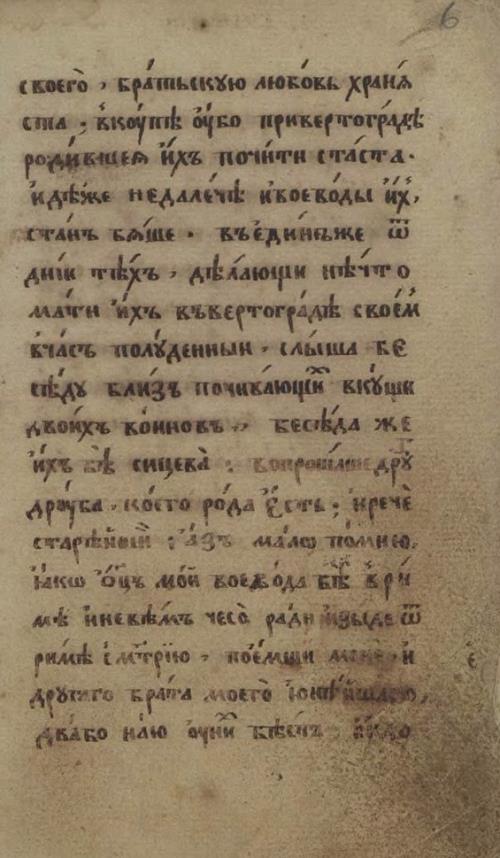 6
своего̀ , бра́тьскую любо́вь храня́
ста ; вкꙋ́пѣ ᲂу҆́бо привертогра́дѣ
роди́вшея и҆́хъ почи́ти ста́ста .
и҆дѣ́же недале́чѣ ивоево́ды и҆́х ,
ста́нъ бѧ́ше . въеди́ныже ѿ
дні́и тѣ́хъ , дѣ́лающи нѣ́что
ма́ти и҆́хъ въвертогра́дѣ свое́м
вча́съ полу́денныи , слы́ша бе
сѣ́ду близъ почива́ющиⷯ вку́щи
двои́хъ во́иновъ ,, бесѣ́да же
и҆́хъ бѣ̀ сицева̀ : вопроша́ше дру́
дрꙋ́га , ко́сто ро́да є҆́сть ; иречѐ
старѣ́йшій : а҆́зъ ма́лѡ по́мню ,
ꙗ҆́кѡ ѻ҆ц҃ъ мо́й воево́да бѣ̀ в ри́
мѣ иневѣ́мъ чесо̀ ра́ди изы́де ѿ
ри́мѣ смт҃рїю , пое́мши менѐ и
друга́го бра́та моего̀ ю҆нѣ́йшаго ,
два́бо на́ю